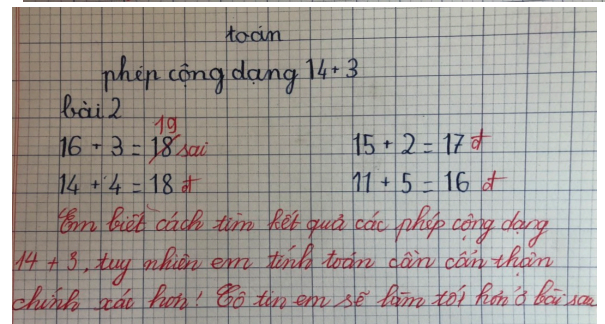 toán
phép cộng dạng 14 + 3
bài 2
19
16 + 3 = 18 sai 15 + 2 = 17 đ
14 + 4 = 18 đ 11 + 5 = 16 đ
Em biết cách tìm kết quả các phép cộng dạng
14 + 3, tuy nhiên em tính toán cần cẩn thận
chính xác hơn! Cô tin em sẽ làm tốt hơn ở bài sau